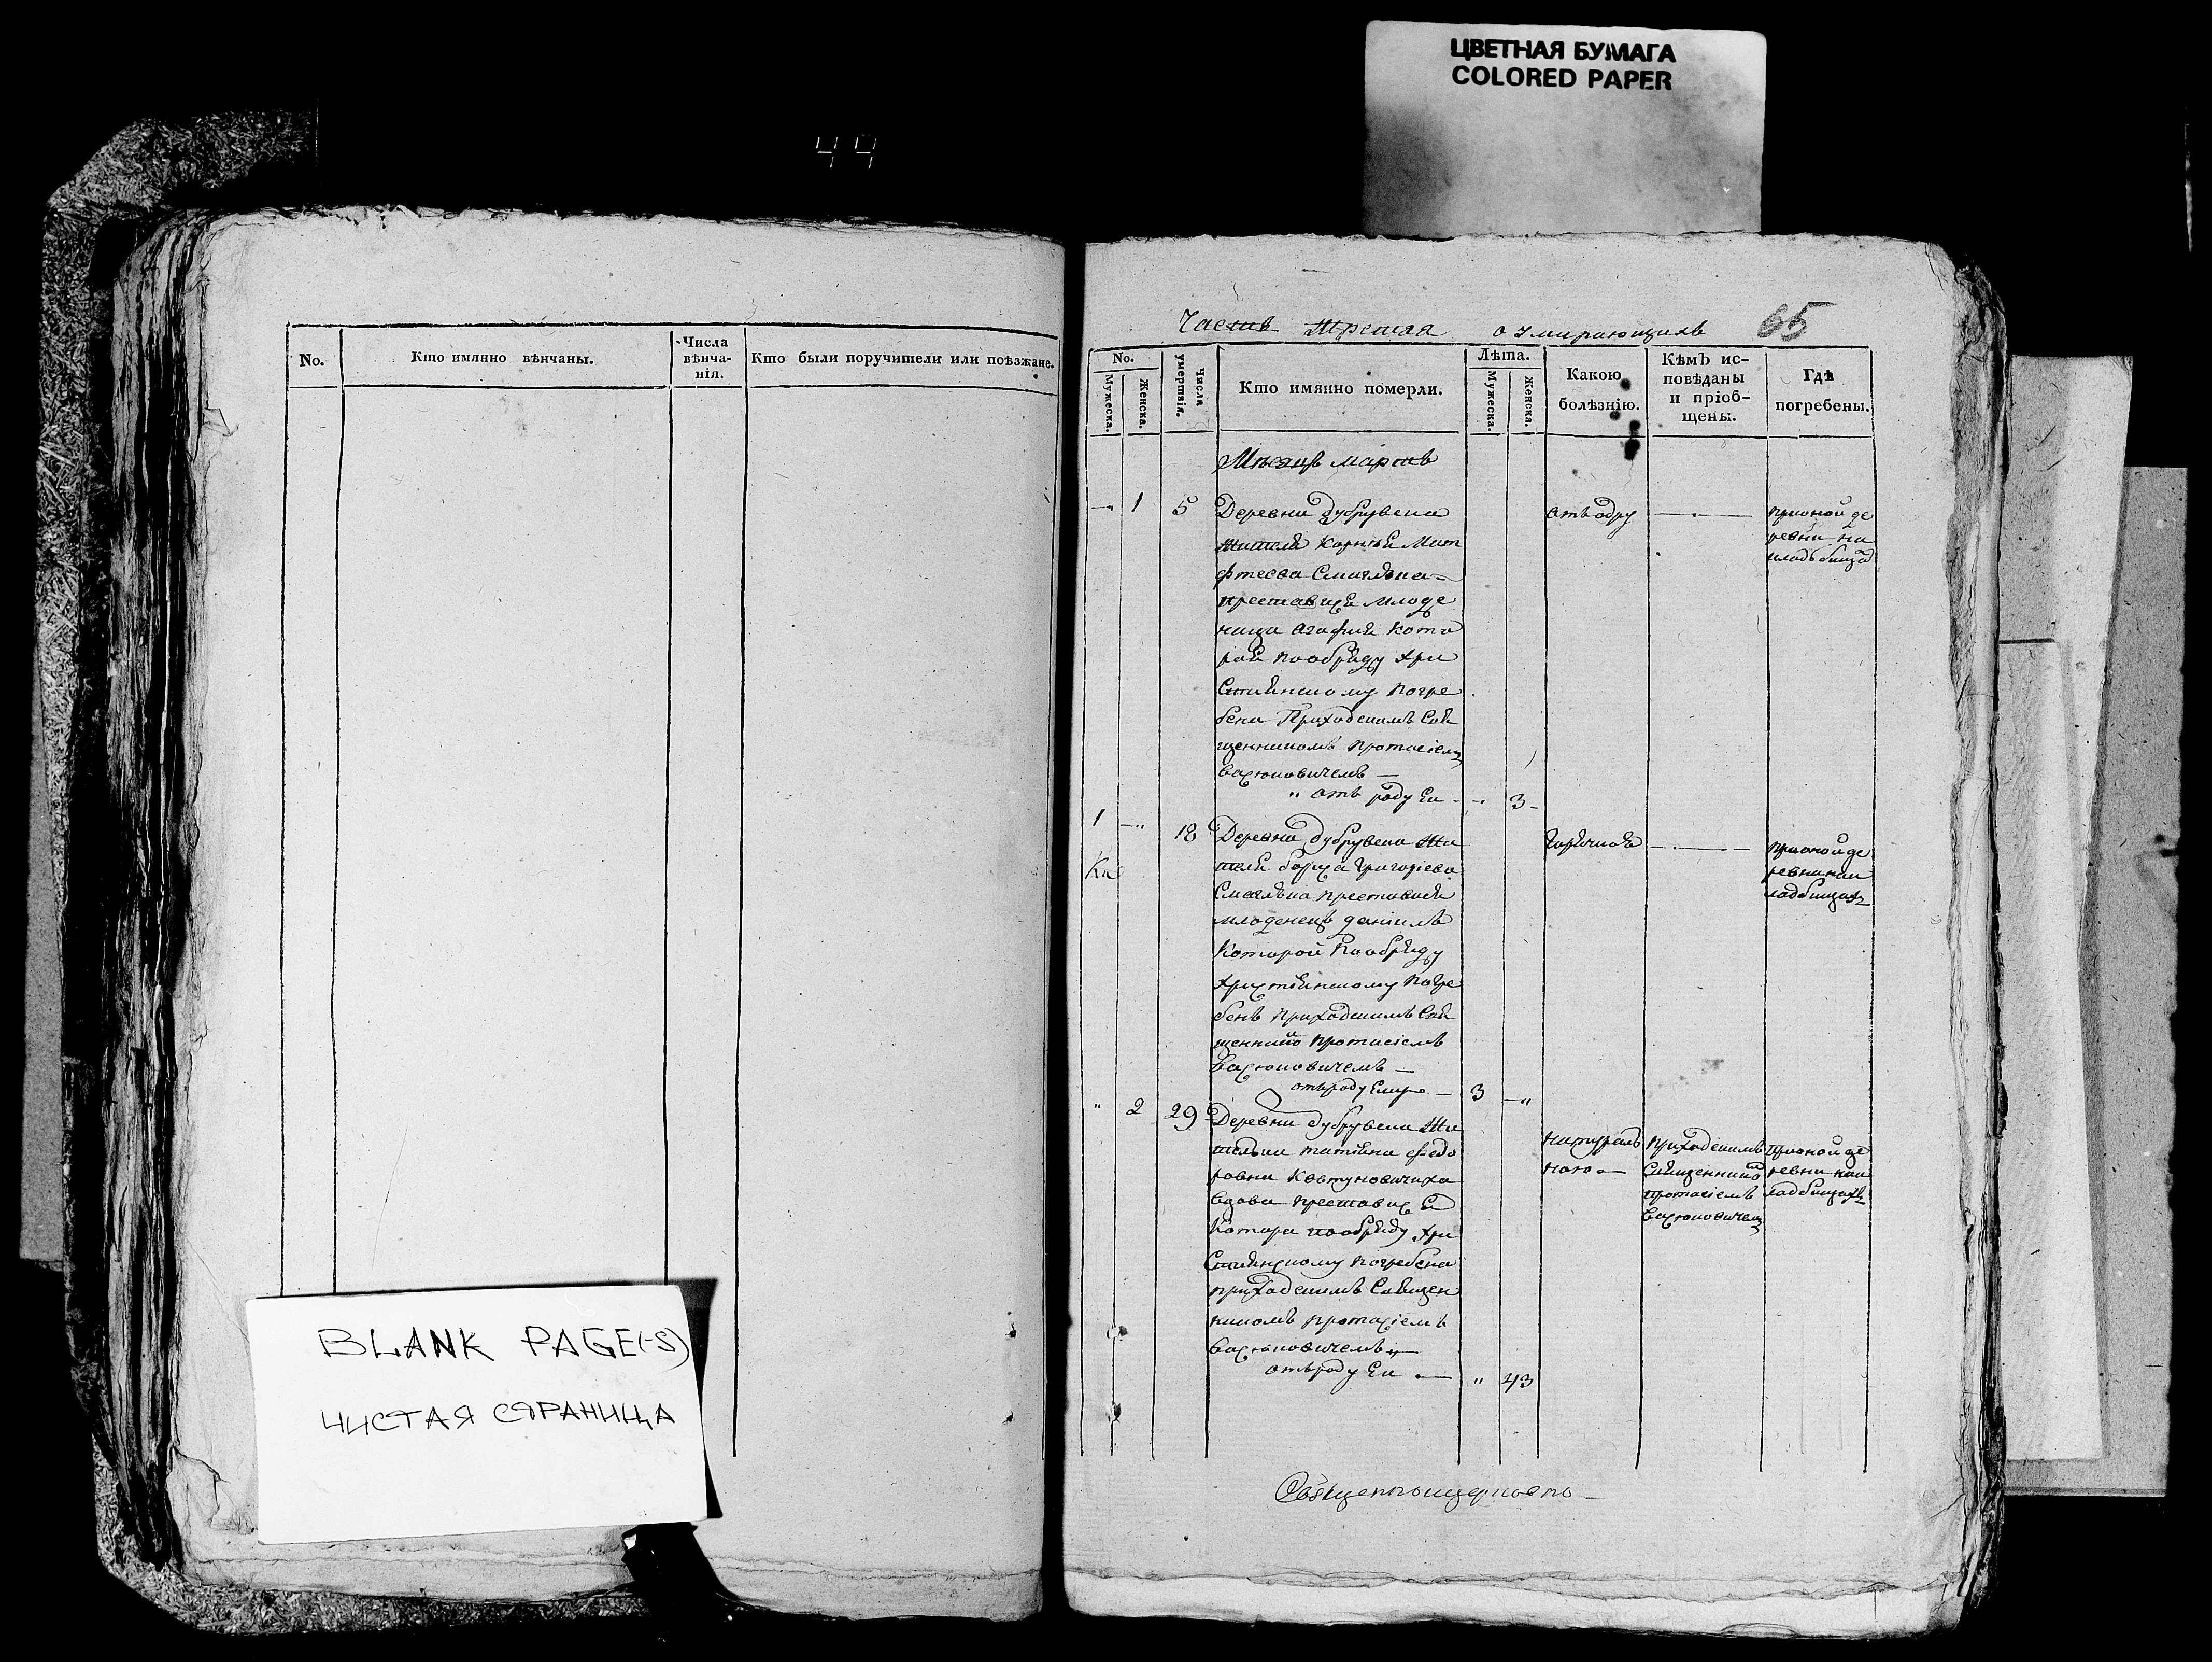 ЦВЕТНАЯ БУМАГА
COLORED PAPER
44
No.
Кто имянно вѣнчаны.
Числа
вѣнча-
нія.
Кто были поручители или поѣзжане.
BLANK PAGE(-S)
ЧИСТАЯ СТРАНИЦА
Часть третая о умирающихъ
65
No.
Мужеска.
Женска.
Числа
умертвія.
Кто имянно померли.
Лѣта.
Мужеска.
Женска.
Какою
болѣзнію.
Кѣмъ ис-
повѣданы
и пріоб-
щены.
Гдѣ
погребены.
Мѣсяцъ мартъ
1 5 Деревни Дубрувена
жителя Корнѣя Мат
фѣева
преставися младе
ница Агафия кото
рая пообряду хри
стиянскому погре
бена Приходскимъ Свя
щенникомъ Протасіемъ
Васюковичемъ
отъ роду ея 3
отъ одру
прионой де
ревни на
кладъбищѣ
1 18 Деревни Дубрувена жи
теля Григоріева
преставися
младенецъ Даніилъ
которой пообряду
християнскому погре
бенъ приходскимъ Свя
щенникомъ Протасіемъ
Васюковичемъ
отъроду ему 3
прионой де
ревни на к
ладбищахъ
2 29 Деревни Дубрувена жи
телька татияна Федо
ровна Ковтуновичиха
вдова преставися
котора пообряду хри
стиянскому погребена
приходскимъ Священ
никомъ Протасіемъ
Васюковичемъ
отъроду ея 43
натураль
ною
приходскимъ
Священникомъ
протасіемъ
Васюковичемъ
прионой де
ревни на к
ладбищахъ